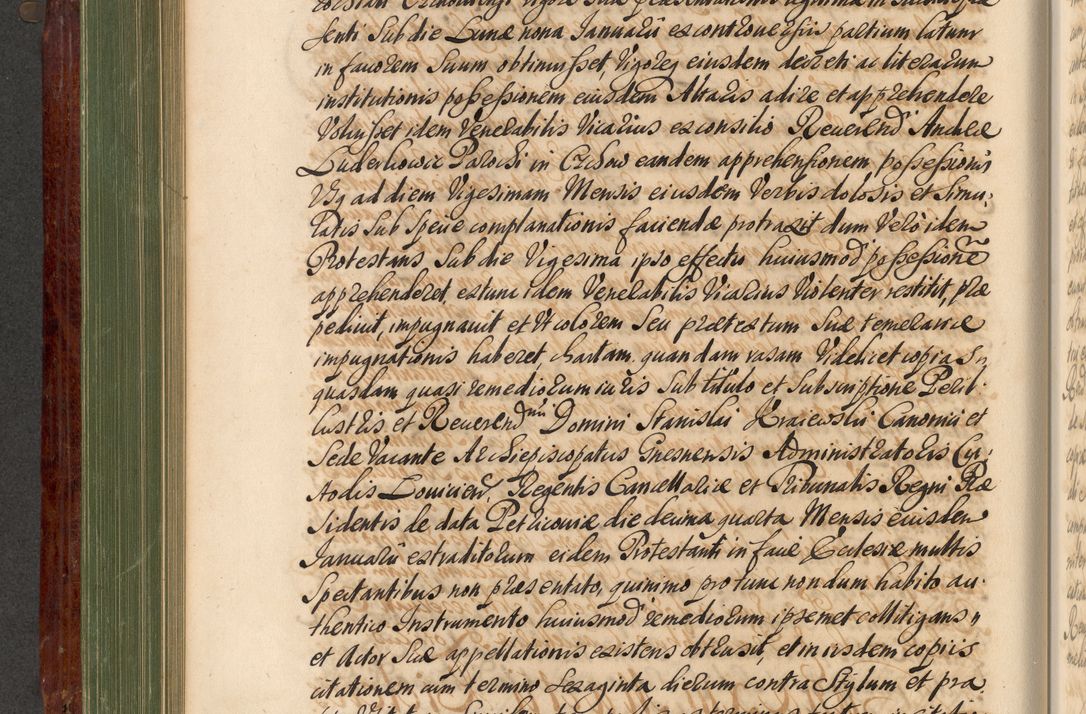 senti Sub die Lunæ nona Januarii ex controuersiis partium latum
in fauorem Suum obtinuisset, Vigoreq eiusdem decreti ac literarum
institutionis possessionem eiusdem Altaris adire et apprehendere
Voluisset idem Venerabilis Vicarius ex consilio Reuerend Andreæ
Parochi in Czchow eandem apprehensionem possessionis
Vsq ad diem Vigesimam Mensis eiusdem Verbis dolosis et Simu:
latis Sub Specie complanationis faciendæ protraxit dum Verò idem
Protestans Sub die Vigesima ipso effectu huiusmod possessione
apprehenderet, extunc idem Venerabilis Vicarius Violenter restitit, præ
pediuit, impugnauit et Vt colorem Seu prætextum Suæ temerariæ
impugnationis haberet chartam quandam rasam Videlicet copias
quasdam quasi remediorum iuris Sub titulo et Subscriptione Peril:
lustris et Reuerendmi Domini Stanislai Kraiewski Canonici et
Sede Vacante Archiepiscopatus Gnesnensis Administratoris Cu:
stodis Louicien, Regentis Cancellariæ et Tribunalis Regni Præ
sidentis de data Petricouiæ die decima quarta Mensis eiusdem
Januarii extraditorum eidem Protestanti in facie Ecclesiæ multis
Spectantibus non præsentato, quinimo pro tunc nondum habito au:
thentico Instrumento huiusmod remediorum ipsemet collitigans
et Actor Suæ appellationis existens obtrusit, et in iisdem copiis
citationem cum termino Sexaginta dierum contra Stylum et pra